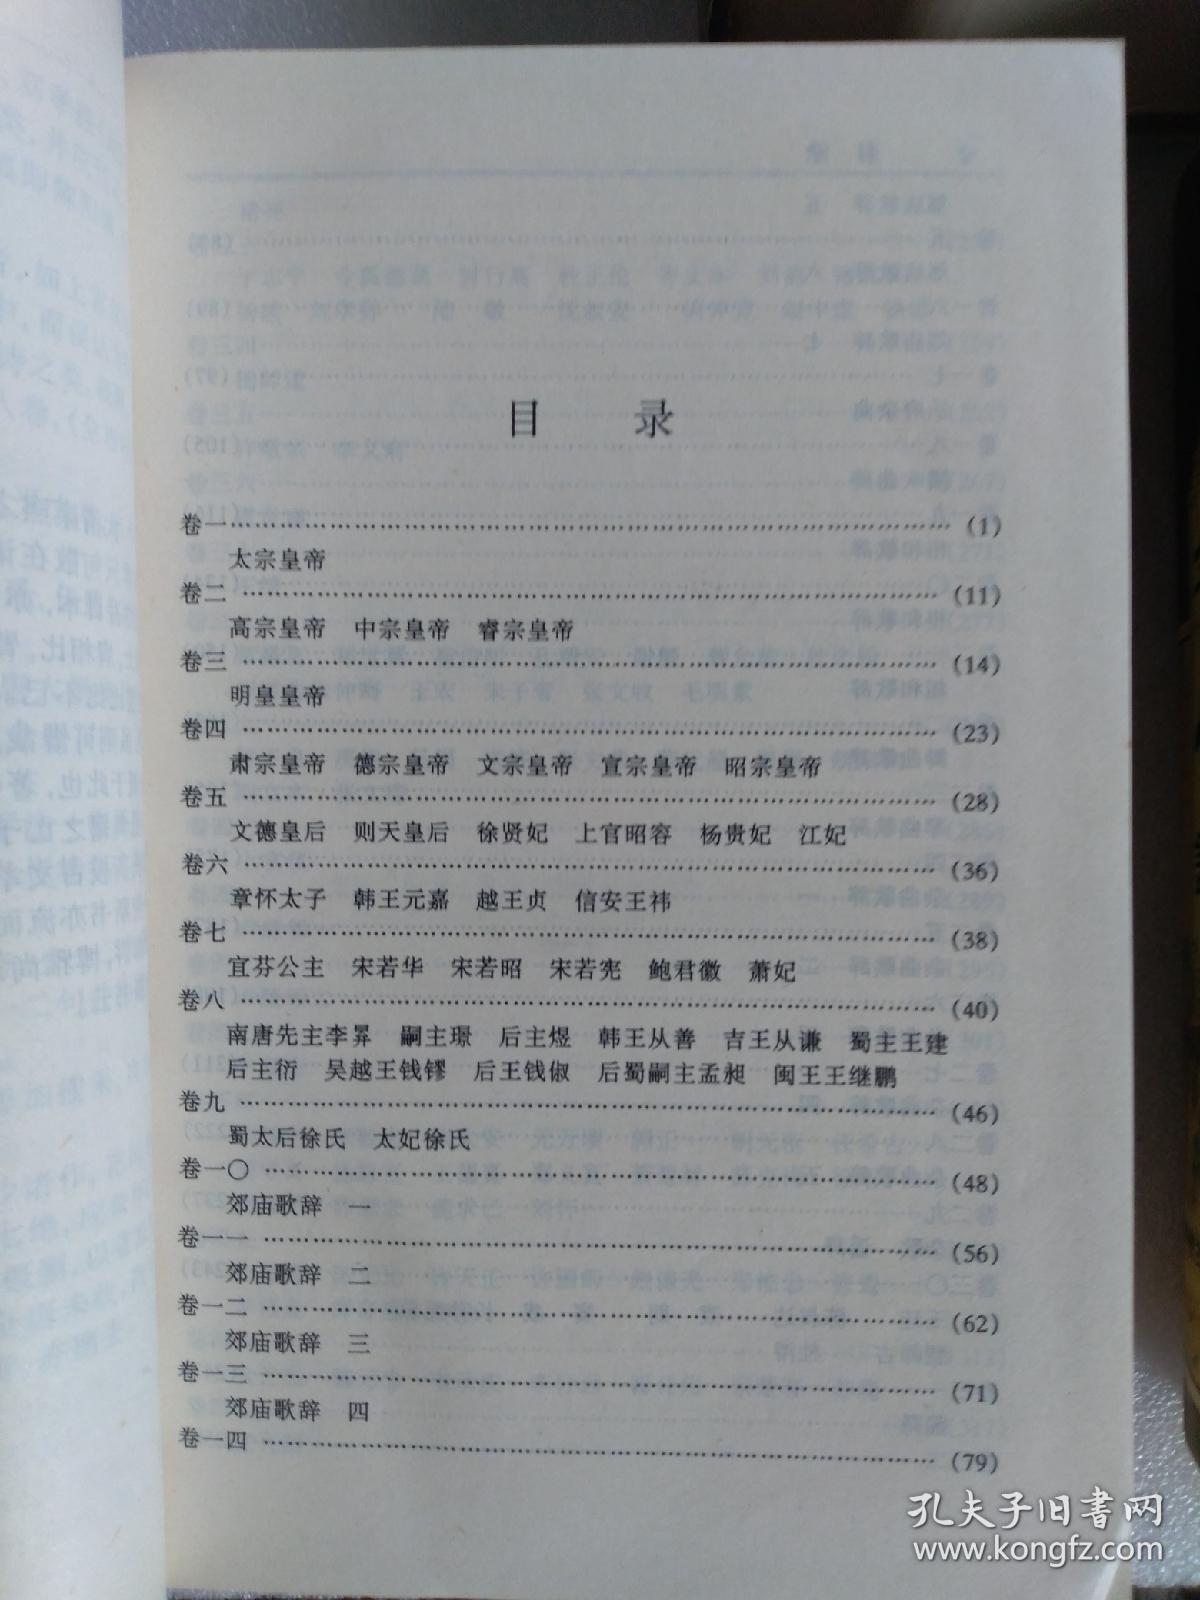 目 录
卷一……………………………………………………(1)
太宗皇帝
卷二……………………………………………………(11)
高宗皇帝 中宗皇帝 睿宗皇帝
卷三……………………………………………………(14)
明皇皇帝
卷四……………………………………………………(23)
肃宗皇帝 德宗皇帝 文宗皇帝 宣宗皇帝 昭宗皇帝
卷五……………………………………………………(28)
文德皇后 则天皇后 徐贤妃 上官昭容 杨贵妃 江妃
卷六……………………………………………………(36)
章怀太子 韩王元嘉 越王贞 信安王祎
卷七……………………………………………………(38)
宜芬公主 宋若华 宋若昭 宋若宪 鲍君徽 萧妃
卷八……………………………………………………(40)
南唐先主李昪 嗣主璟 后主煜 韩王从善 吉王从谦 蜀主王建
后主衍 吴越王钱镠 后王钱俶 后蜀嗣主孟昶 闽王王继鹏
卷九……………………………………………………(46)
蜀太后徐氏 太妃徐氏
卷一〇…………………………………………………(48)
郊庙歌辞 一
卷一一…………………………………………………(56)
郊庙歌辞 二
卷一二…………………………………………………(62)
郊庙歌辞 三
卷一三…………………………………………………(71)
郊庙歌辞 四
卷一四…………………………………………………(79)
孔夫子旧书网
www.kongfz.com